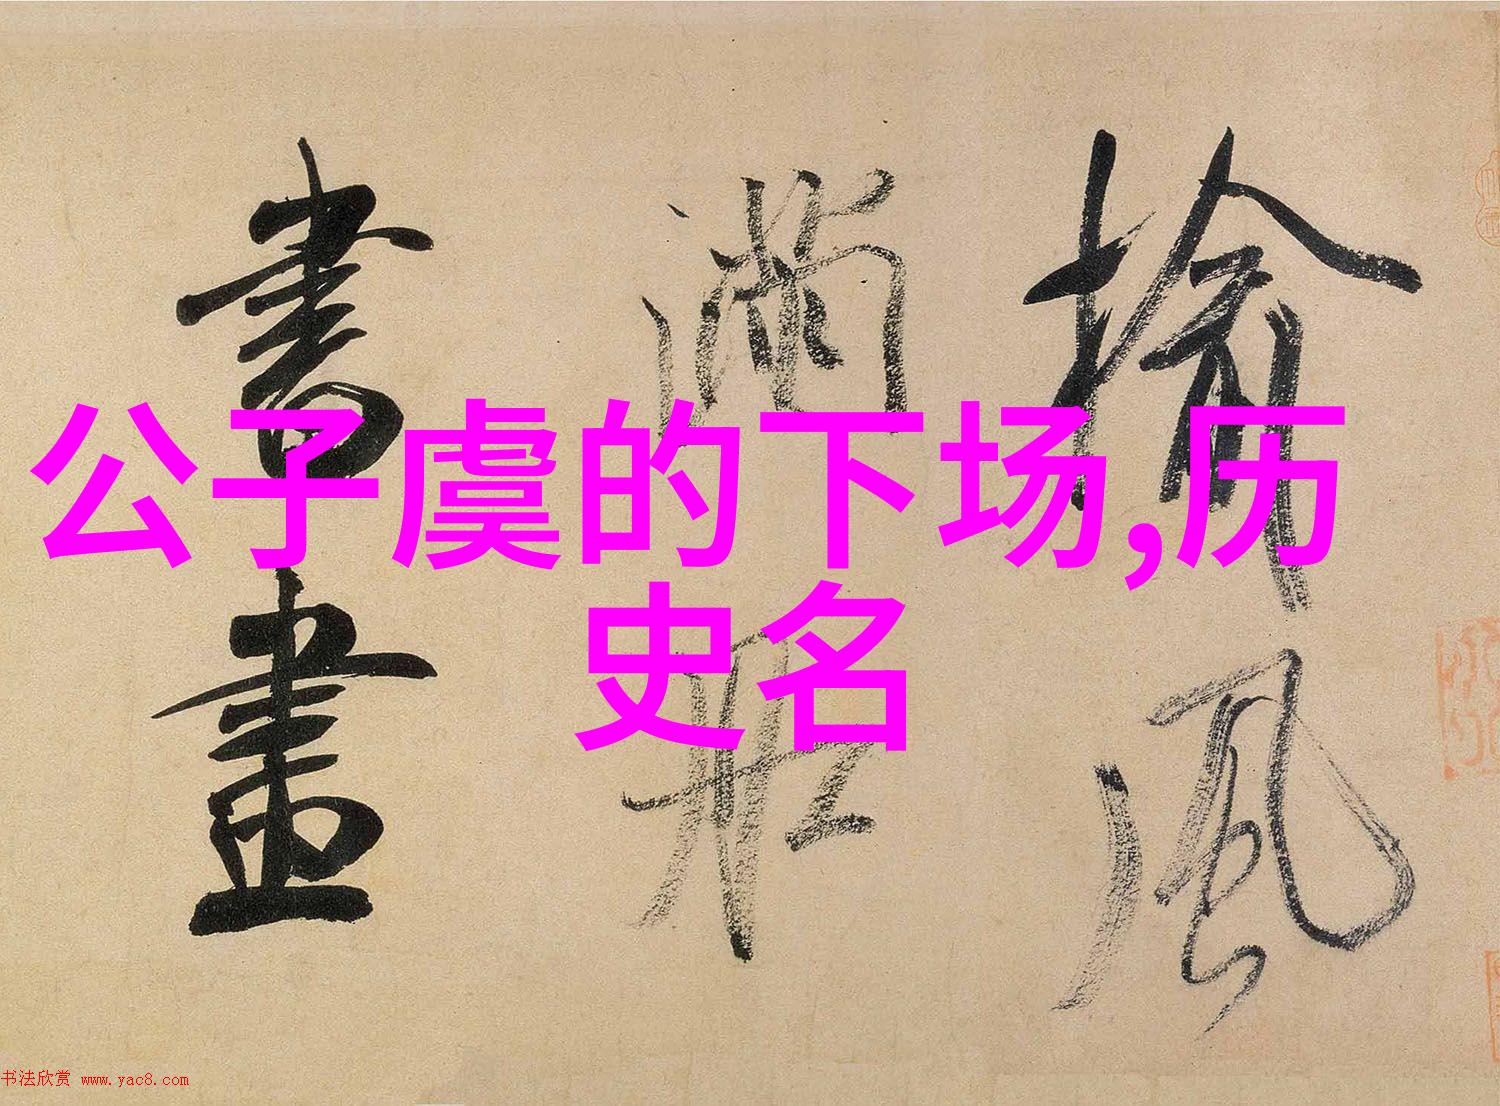 公子虞的下场,历
史名
揄風
滿牀
書畫
书法欣赏 www.yac8.com